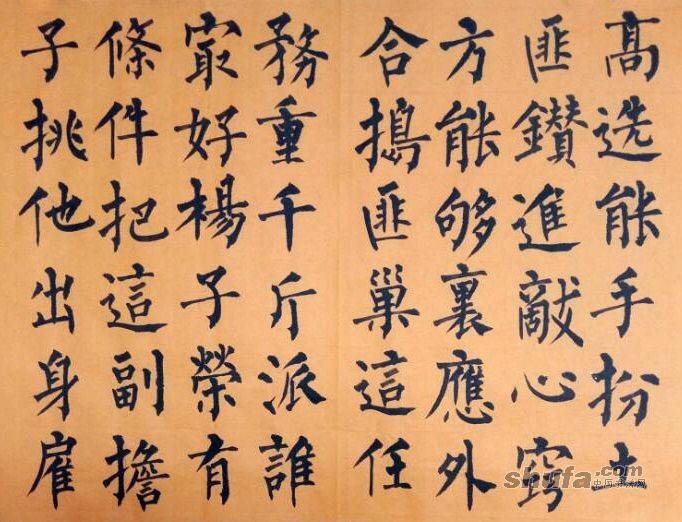 高选能手扮土
匪鑽進敵心窍
方能够裏應外
合搗匪巢這任
務重千斤派誰
寂好楊子榮有
條件把這副擔
子挑他出身雇
shufa.com